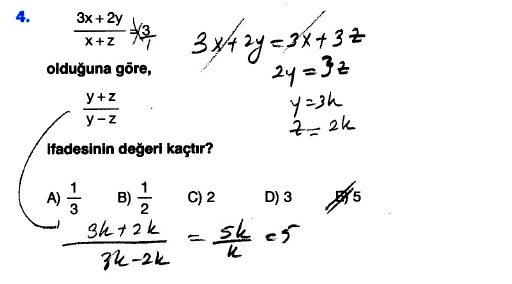 4.
3x + 2y / x + z = 3/1
3x + 2y = 3x + 3z
2y = 3z
olduğuna göre,
y = 3k
z = 2k
y + z / y − z
ifadesinin değeri kaçtır?
A) 1/3 B) 1/2 C) 2 D) 3 E) 5
3k + 2k / 3k - 2k = 5k / k = 5